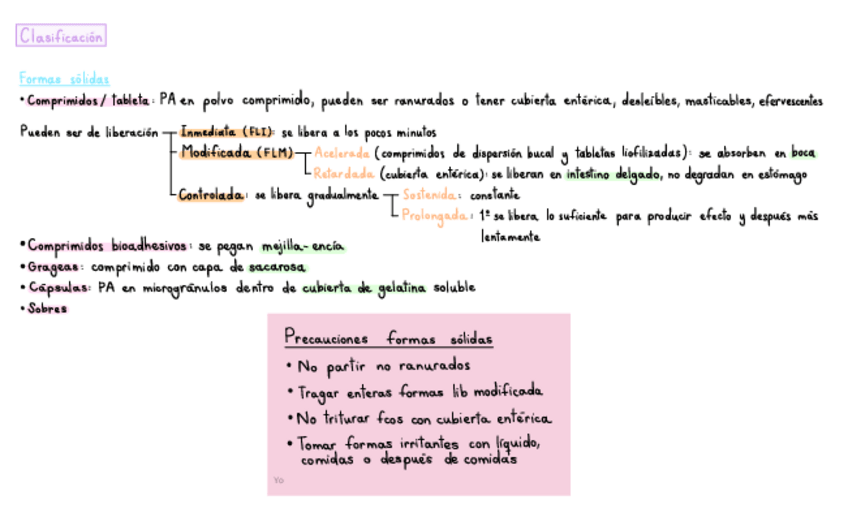 Clasificación
Formas sólidas
• Comprimidos / tableta: PA en polvo comprimido, pueden ser ranurados o tener cubierta entérica, desleíbles, masticables, efervescentes
Pueden ser de liberación Inmediata (FLI): se libera a los pocos minutos
Modificada (FLM) Acelerada (comprimidos de dispersión bucal y tabletas liofilizadas): se absorben en boca
Retardada (cubierta entérica): se liberan en intestino delgado, no degradan en estómago
Controlada: se libera gradualmente Sostenida: constante
Prolongada: 1º se libera lo suficiente para producir efecto y después más
lentamente
• Comprimidos bioadhesivos: se pegan mejilla-encía
• Grageas: comprimido con capa de sacarosa
• Cápsulas: PA en microgránulos dentro de cubierta de gelatina soluble
• Sobres
Precauciones formas sólidas
• No partir no ranurados
• Tragar enteras formas lib modificada
• No triturar fcos con cubierta entérica
• Tomar formas irritantes con líquido,
comidas o después de comidas
Yo